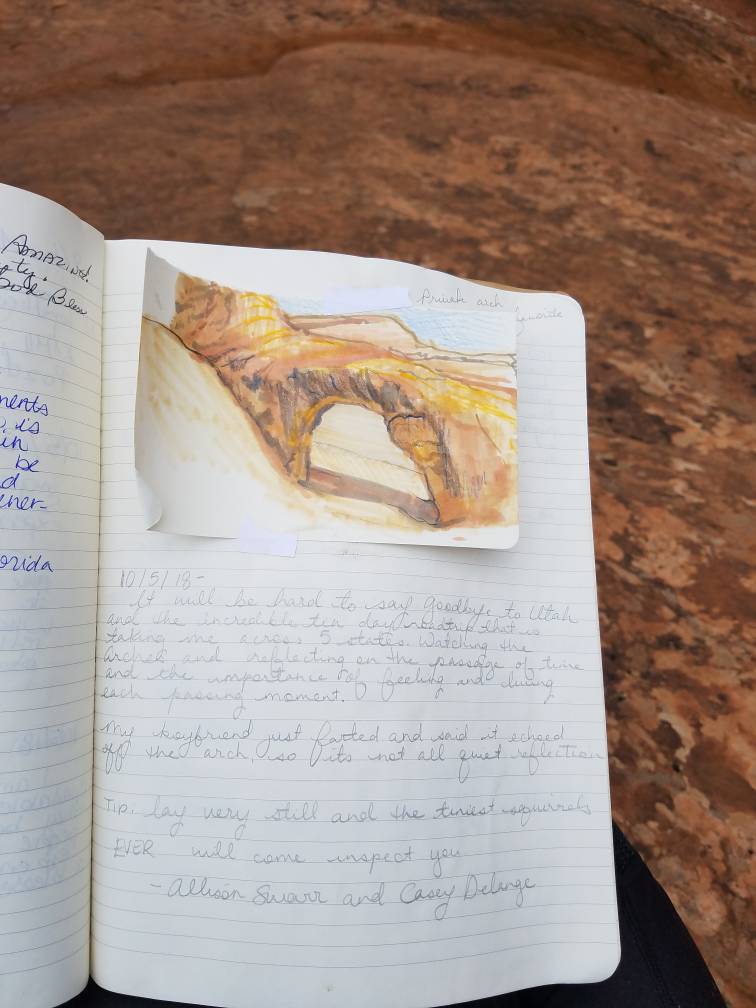 Amazing.
God Bless
ments
is
in
be
d
ener-
orida
Private arch
favorite
10/5/18-
It will be hard to say goodbye to Utah
and the incredible ten day roadtrip that is
taking me across 5 states. Watching the
arches and reflecting on the passage of time
and the importance of feeling and living
each passing moment.
My boyfriend just farted and said it echoed
off the arch, so its not all quiet reflection
TIP: lay very still and the tiniest squirrels
EVER will come inspect you
- Allison Swarr and Casey Delange